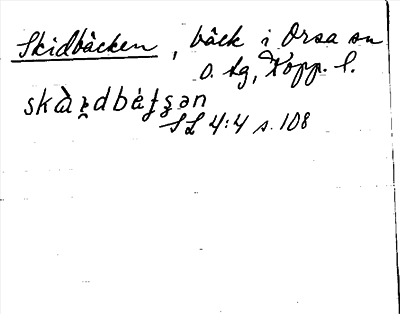 Skidbäcken, bäck i Orsa sn
o. tg, Kopp. l.
skὰrdbɛ́tʂən
SL 4:4 s. 108